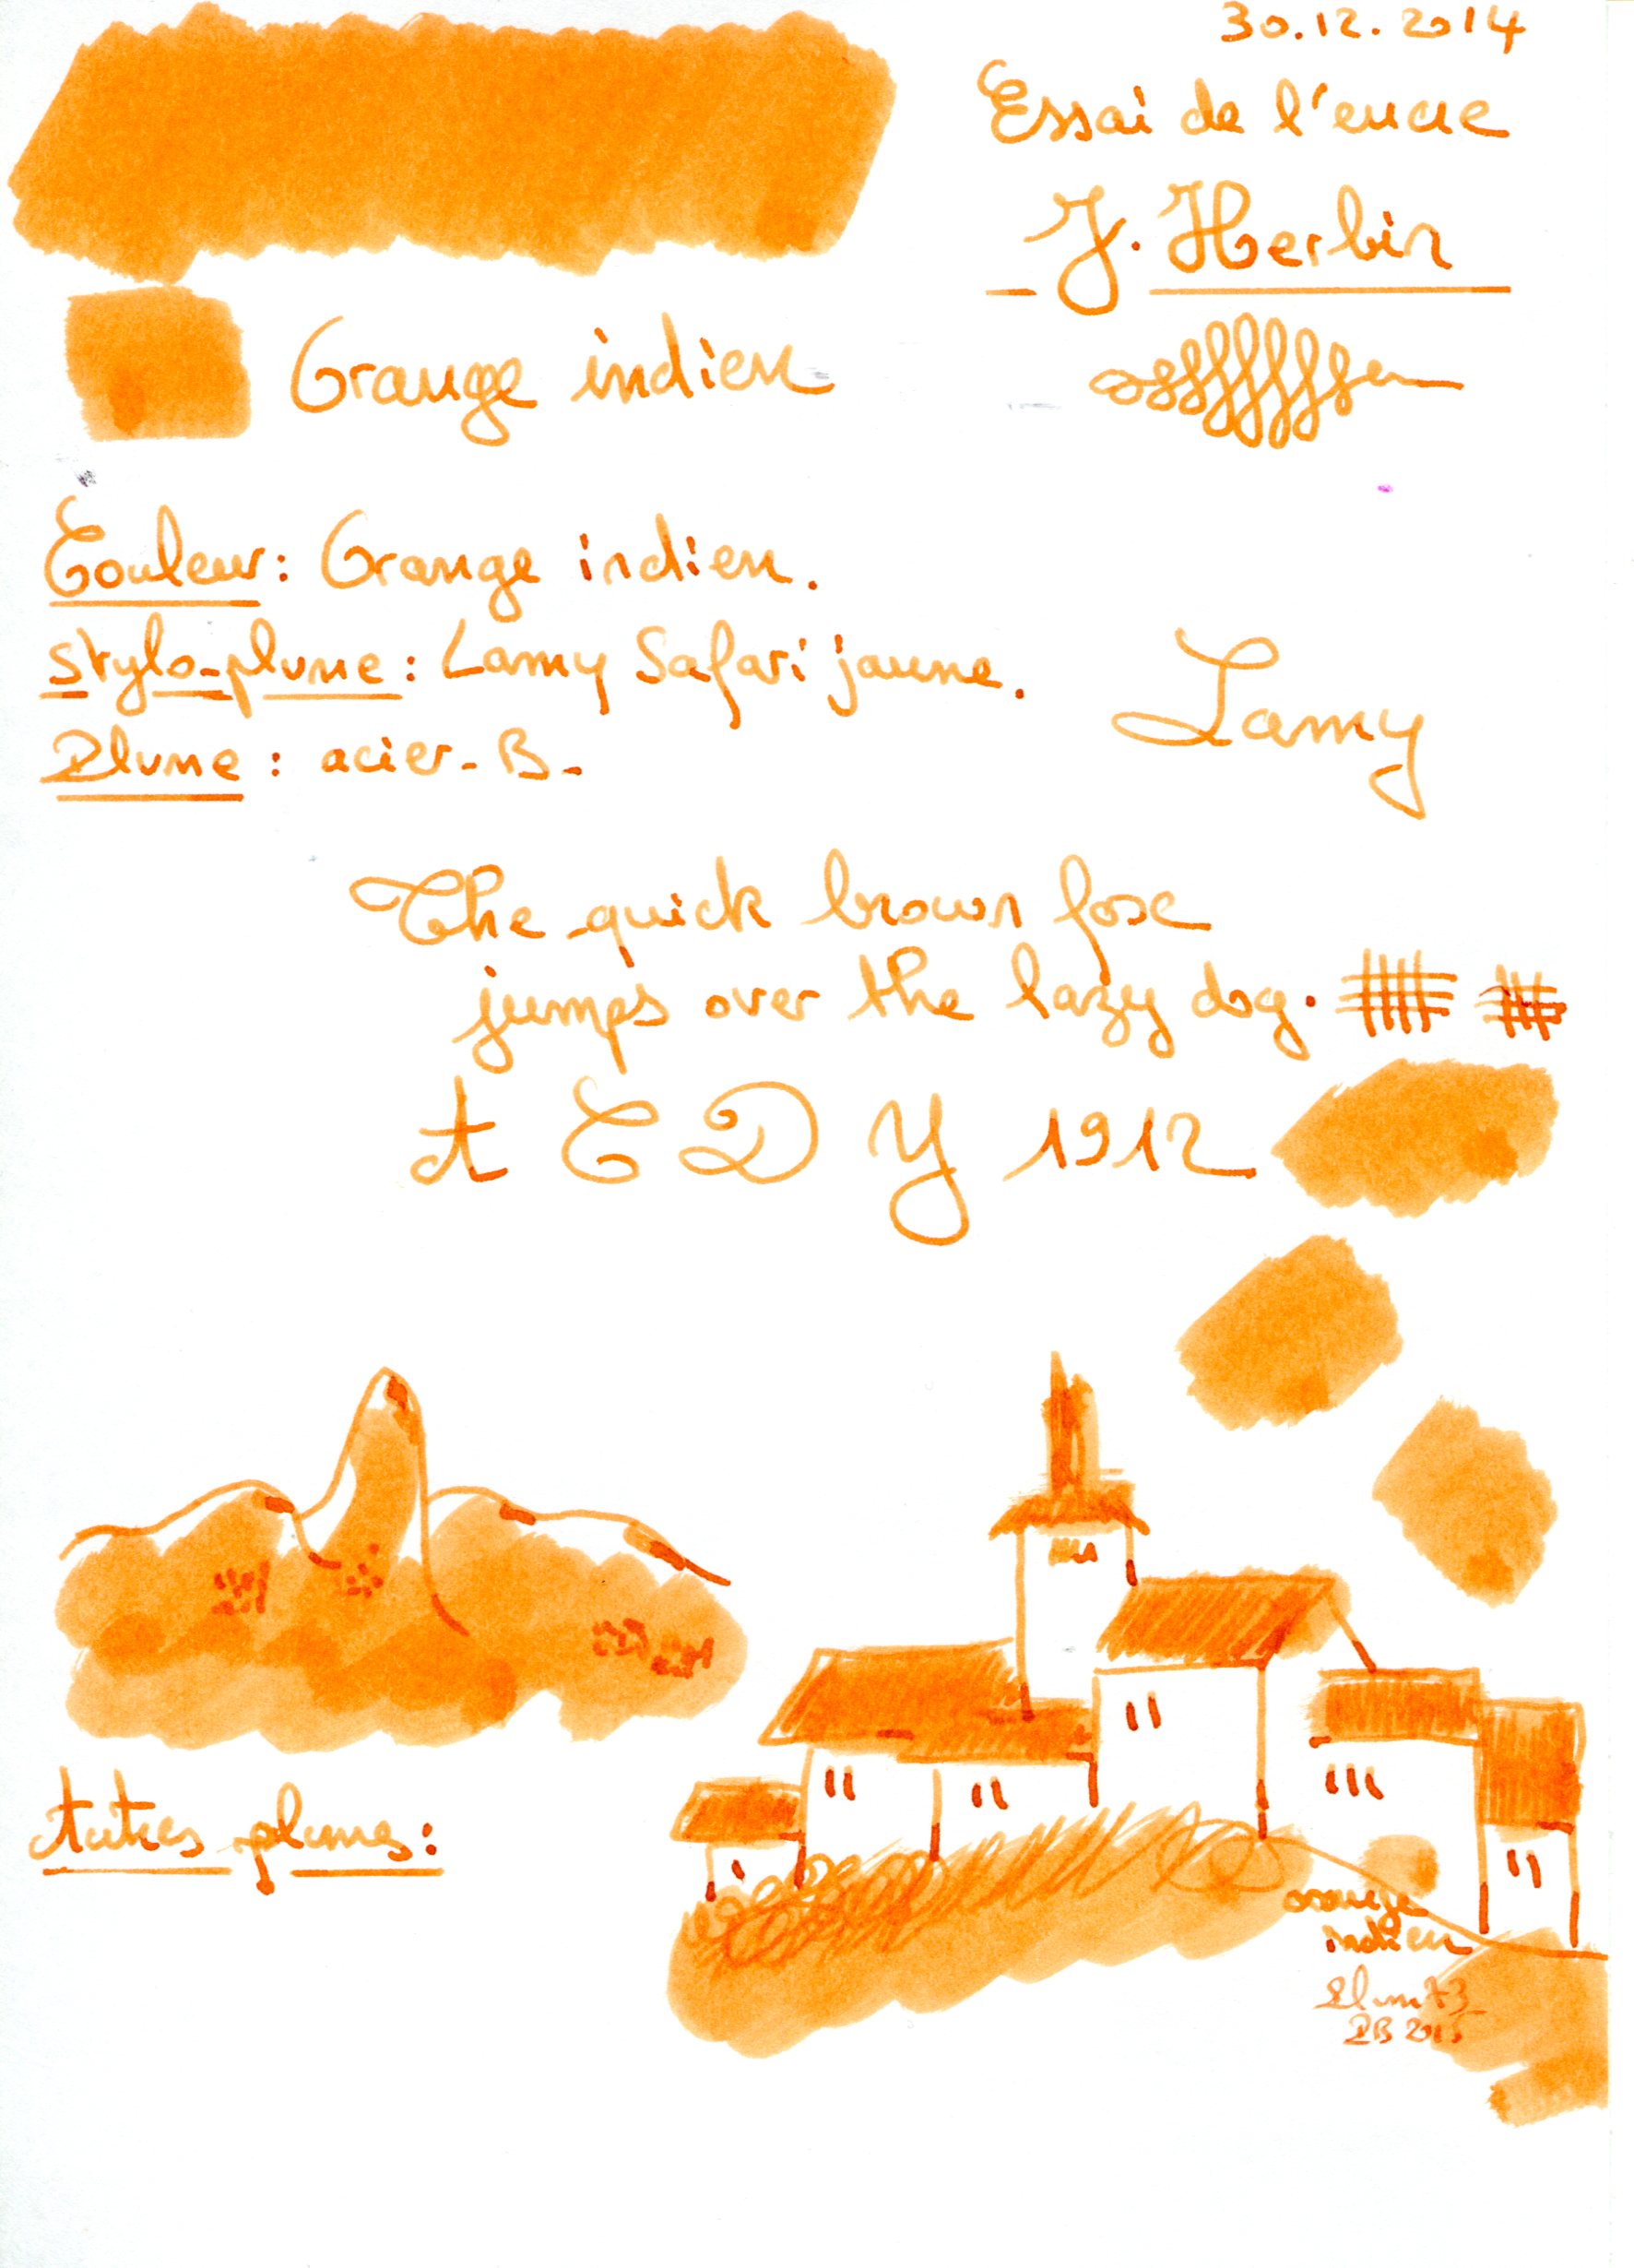 30.12.2014
Essai de l'encre
J. Herbin
Orange indien
Couleur: Orange indien.
Stylo-plume: Lamy Safari jaune.
Plume: acier - B -
Lamy
The quick brown fox
jumps over the lazy dog.
A C D Y 1912
Autres plumes:
orange
indien
PB 2015